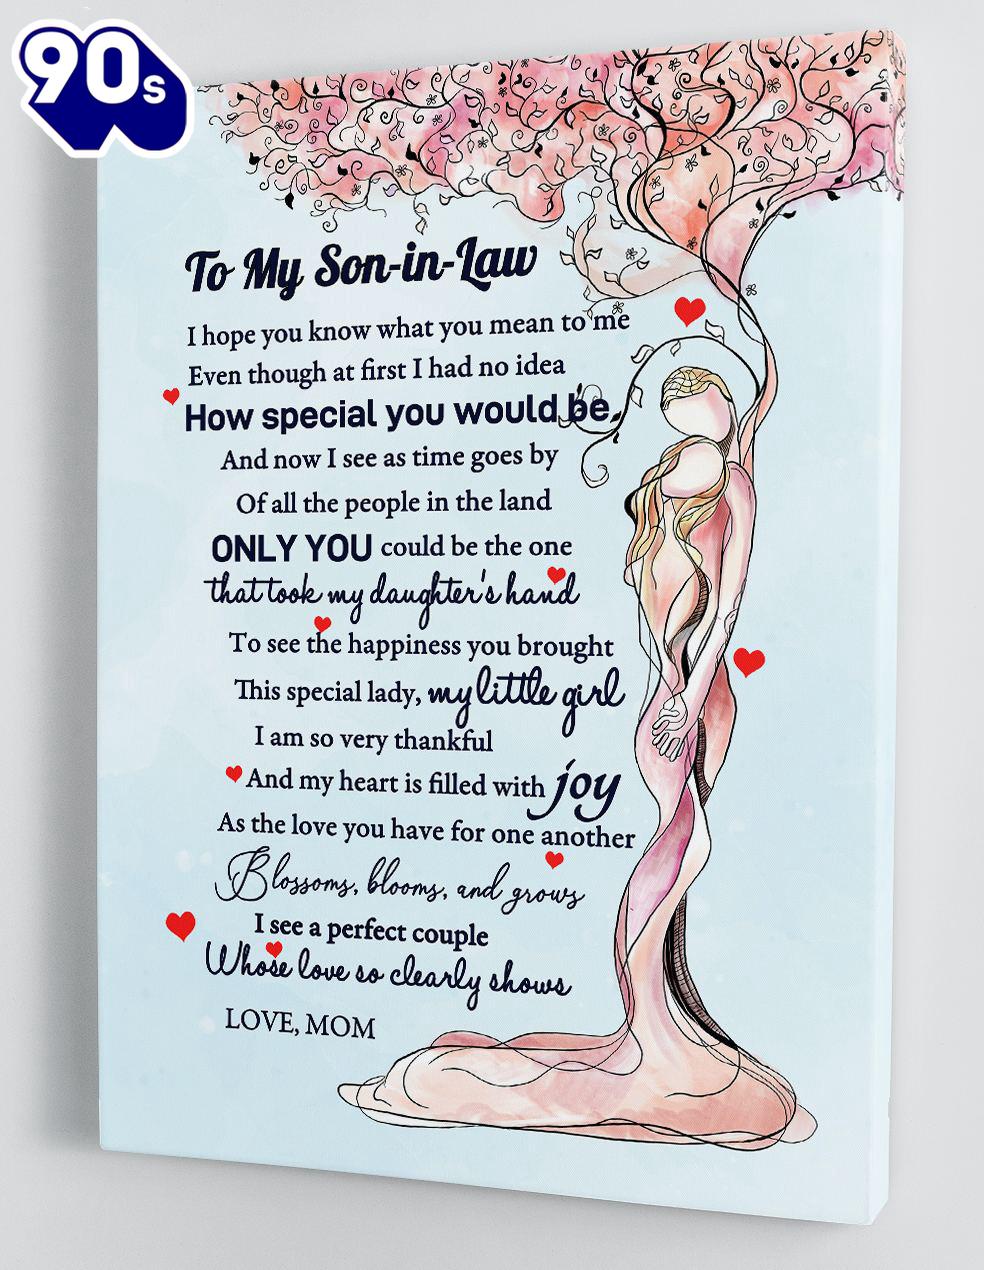 90s
To My Son-in-Law
I hope you know what you mean to me
Even though at first I had no idea
How special you would be,
And now I see as time goes by
Of all the people in the land
ONLY YOU could be the one
that took my daughter's hand
To see the happiness you brought
This special lady, my little girl
I am so very thankful
And my heart is filled with joy
As the love you have for one another
Blossoms, blooms, and grows
I see a perfect couple
Whose love so clearly shows
LOVE, MOM